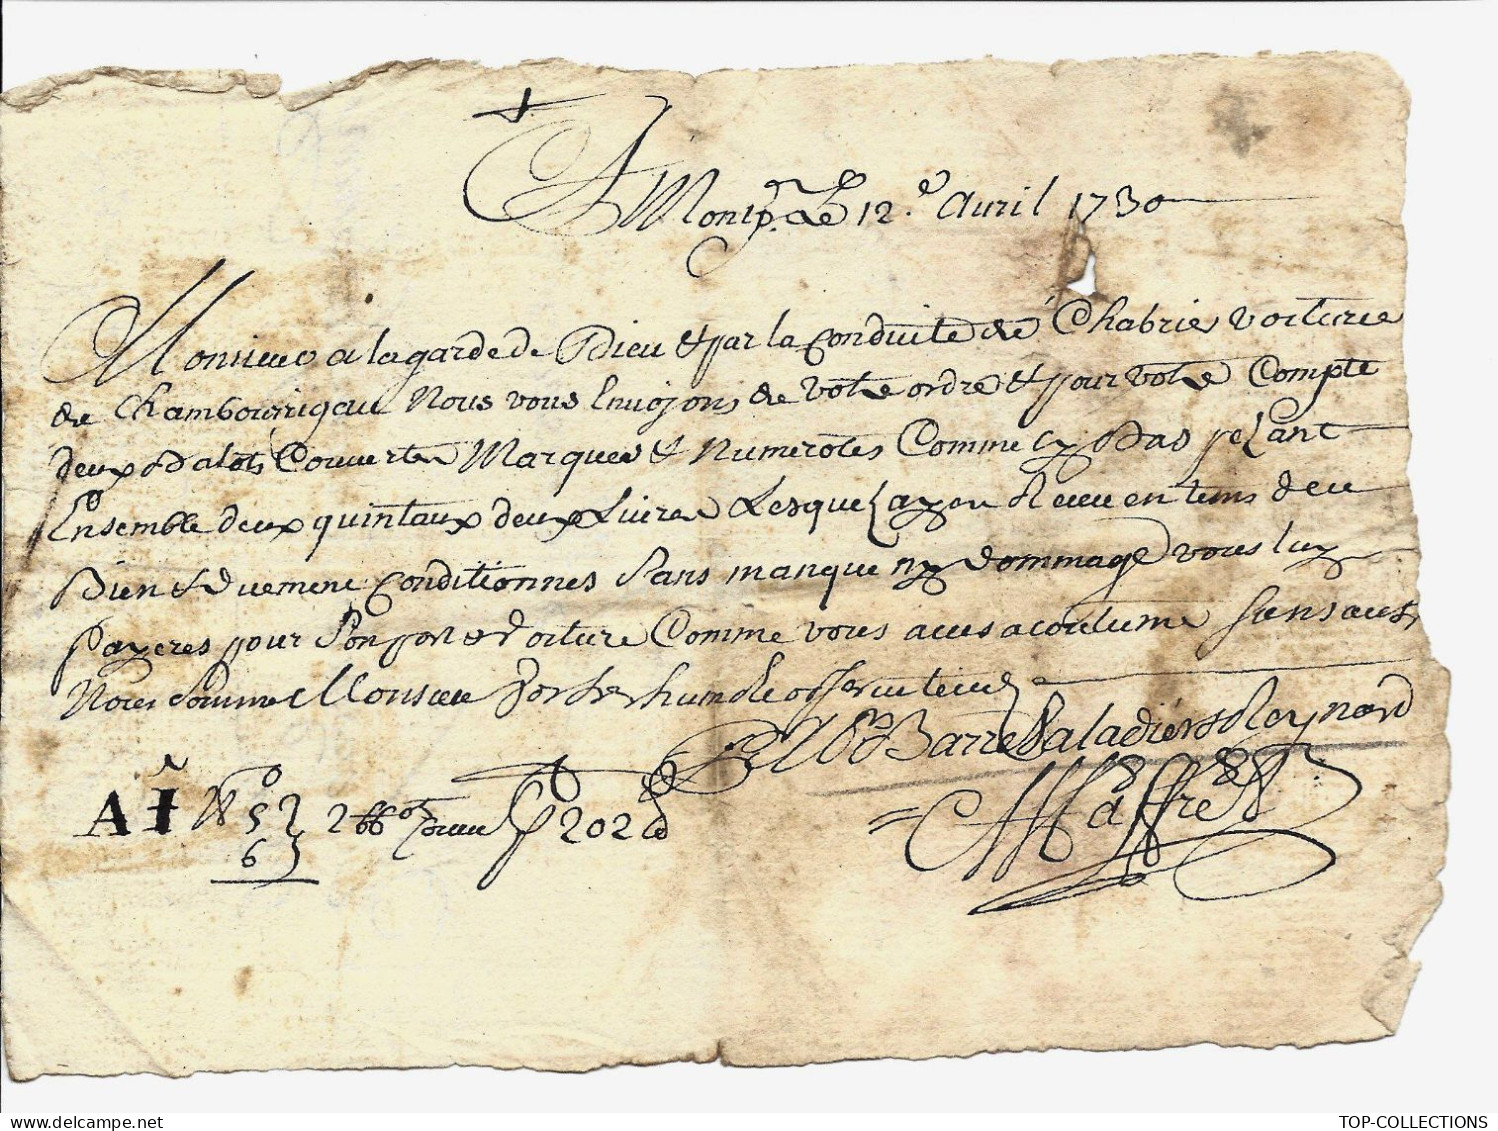 A Montp.er Le 12.e Avril 1730
Monsieur a la garde de Dieu & par la Conduite de Chabrie voiturie
de Chambourrigau Nous vous Envoyons de votre ordre & pour votre Compte
deux Balots Couverten Marques & Numerotes Comme cy Bas pezant
Ensemble deux quintaux deux Livres Lesquelz ayen Receu en tems deu
Bien & duement Conditionnes Sans manque ny dommage vous luy
payeres pour Son port & voiture Comme vous aves acoutume Sans aut.
Nous Somme Monsieur Vos tres humbles Serviteurs
Barre Saladier & Reynard
AI No 5 2 202 Affre
6
TOP-COLLECTIONS